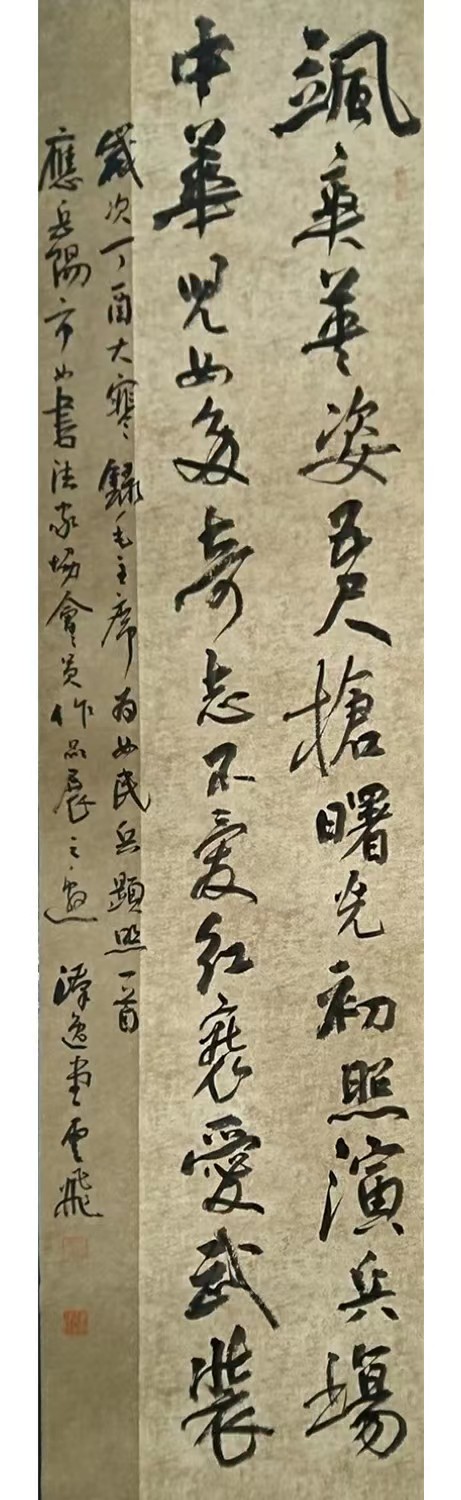 颯爽英姿五尺槍曙光初照演兵場
中華兒女多奇志不愛紅裝愛武裝
歲次丁酉大寒錄毛主席為女民兵題照一首
應岳陽市女書法家協會員作品展之邀 逸堂雲飛